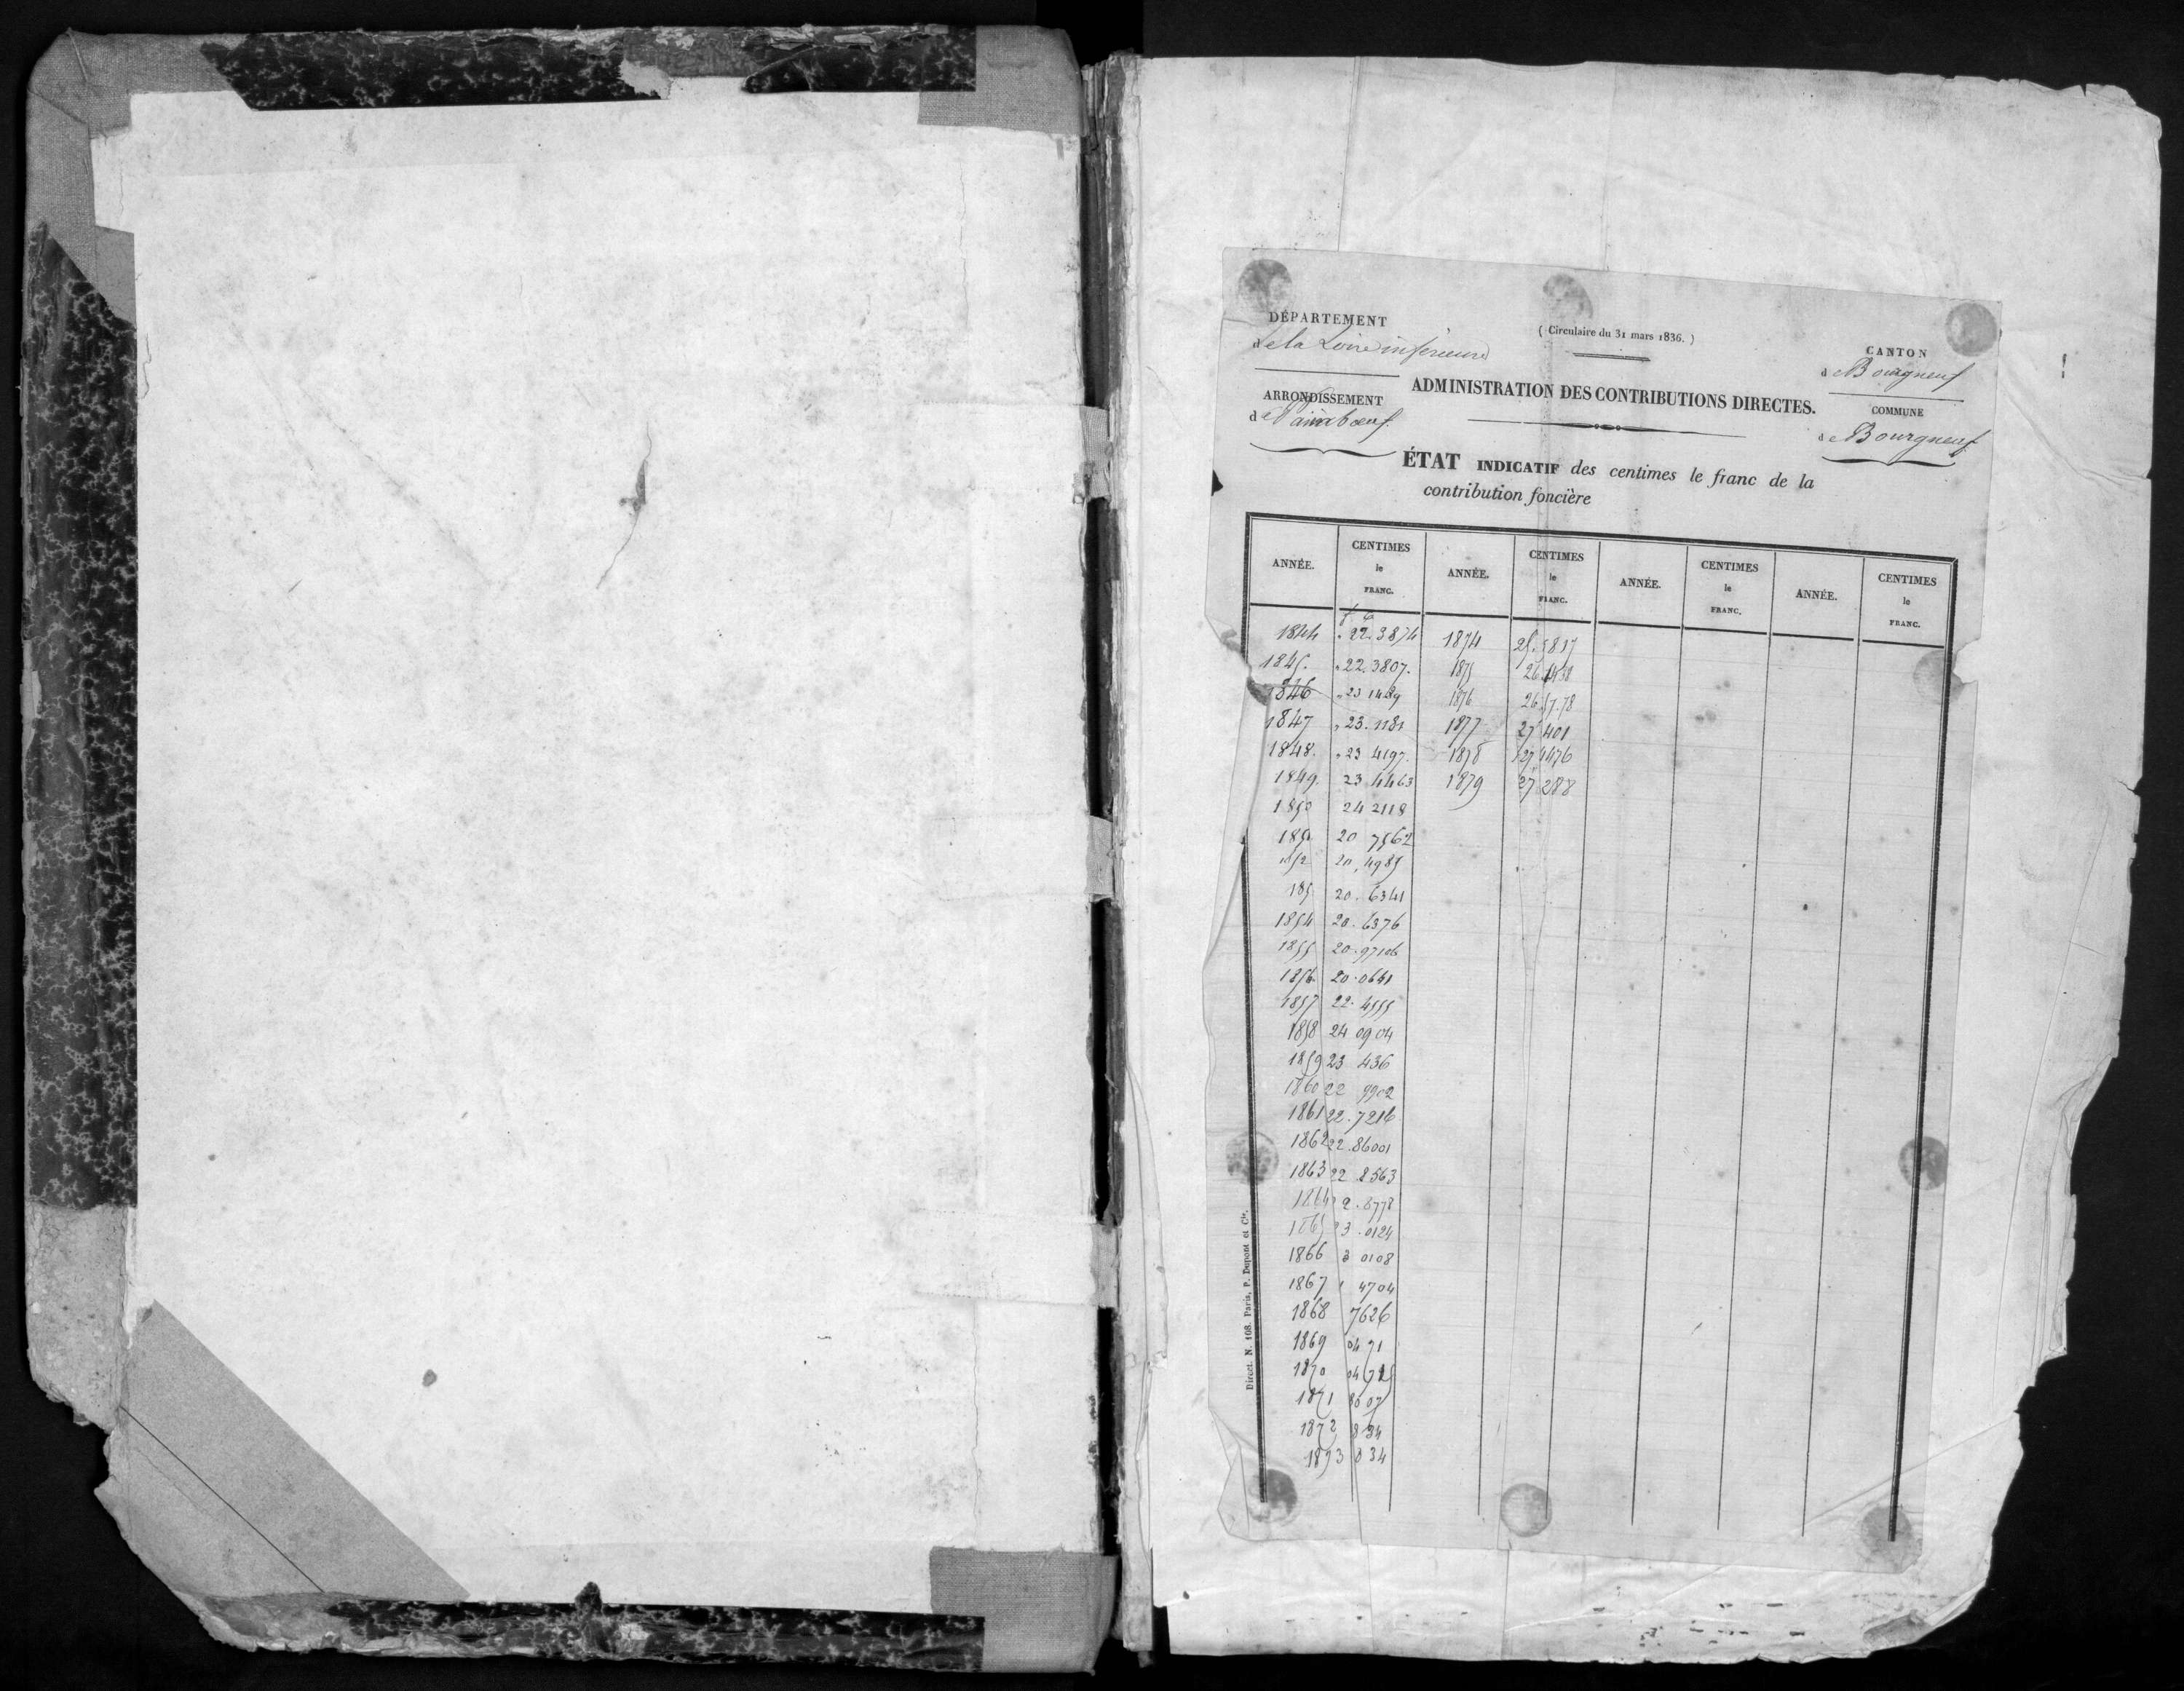 DÉPARTEMENT
de la Loire inférieure
(Circulaire du 31 mars 1836.)
CANTON
de Bourgneuf
ARRONDISSEMENT
de Paimboeuf
ADMINISTRATION DES CONTRIBUTIONS DIRECTES.
COMMUNE
de Bourgneuf
ÉTAT INDICATIF des centimes le franc de la
contribution foncière
ANNÉE. CENTIMES le FRANC. ANNÉE. CENTIMES le FRANC. ANNÉE. CENTIMES le FRANC. ANNÉE. CENTIMES le FRANC.
f c
1844 22.3874 1874
1845. 22.3807. 1875
1846 23 1489 1876 26.57.78
1847 23.1181 1877 27 401
1848. 23 4197. 1878 27 1476
1849. 23 4463 1879 27 288
1850 24 2118
1851 20 7562
1852 20,4985
185 20.6341
1854 20.6376
1855 20.97106
1856 20.0641
1857 22.4555
1858 24 0904
1859 23 436
1860 22 9902
1861 22.7216
1862 22.86001
1863 22 8563
1864 2.8778
1865 23.0124
1866 3 0108
1867 4704
1868 7626
1869 0471
1870
1871 8007
1872 834
1873 834
Direct. N. 108. Paris, P. Dupont et Cie.